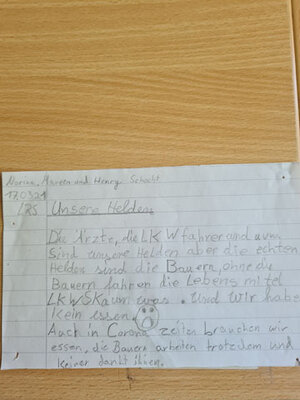 Norina, Maureen und Henry Schacht
17.03.21
LZ5 Unsere Helden
Die Ärzte, die LKW fahrer und uvm.
Sind unsere Helden aber die echten
Helden sind die Bauern, ohne die
Bauern fahren die Lebens mitel
LKWS kaum was. Und Wir habe
kein essen.
Auch in Corona zeiten brauchen wir
essen, die Bauern arbeiten trotzdem und
keiner dankt ihnen.